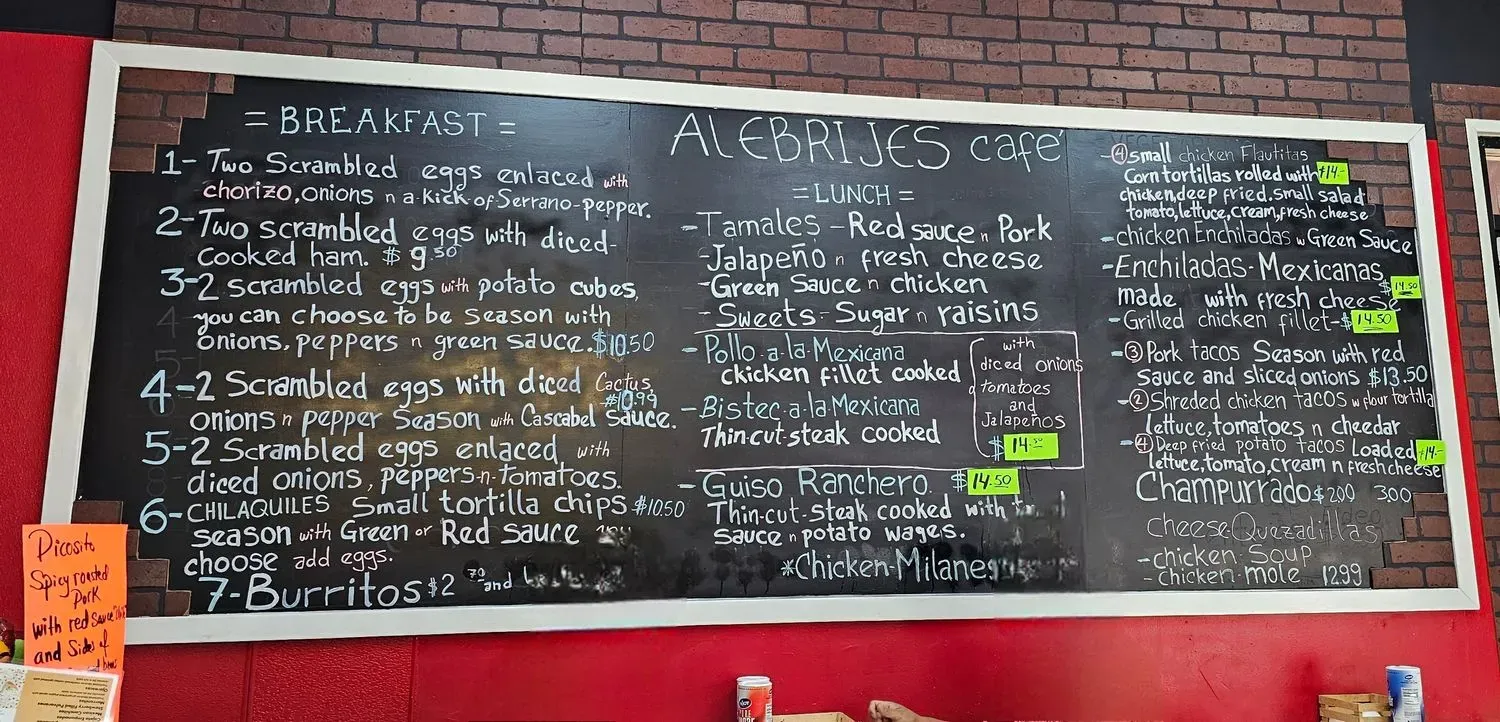 = BREAKFAST =
1- Two Scrambled eggs enlaced with
chorizo, onions n a-kick-of-Serrano-pepper.
2- Two scrambled eggs with diced-
cooked ham. $ 9 50
3-2 scrambled eggs with potato cubes,
you can choose to be season with
onions, peppers n green sauce. $10.50
4-2 Scrambled eggs with diced Cactus
$10.99
onions n pepper Season with Cascabel Sauce.
5-2 Scrambled eggs enlaced with
diced onions, peppers-n-tomatoes.
6-CHILAQUILES Small tortilla chips $10.50
season with Green or Red sauce you
choose add eggs.
7-Burritos $2 70 and
ALEBRIJES café
= LUNCH =
-Tamales - Red sauce n Pork
-Jalapeño n fresh cheese
-Green Sauce n chicken
-Sweets-Sugar n raisins
-Pollo-a-la-Mexicana
ckicken fillet cooked
-Bistec-a-la-Mexicana
Thin-cut-steak cooked
with
diced onions
tomatoes
and
Jalapeños
$ 14.50
-Guiso Ranchero $ 14.50
Thin-cut-steak cooked with
sauce n potato wages.
*Chicken-Milanes
-④small chicken Flautitas
Corn tortillas rolled with $14-
chicken, deep fried. small salad
tomato, lettuce, cream, fresh cheese
-chicken Enchiladas w Green Sauce
-Enchiladas-Mexicanas
$14.50
made with fresh cheese
-Grilled chicken fillet-$14.50
-③Pork tacos Season with red
sauce and sliced onions $13.50
-②Shreded chicken tacos w flour tortilla
lettuce, tomatoes n cheedar
-④Deep fried potato tacos Loaded $14-
lettuce, tomato, cream n fresh cheese
Champurrado $200 300
cheese Quezadillas
-chicken Soup
-chicken mole 1299
Picosito
Spicy roasted
Pork
with red sauce
and Sides of